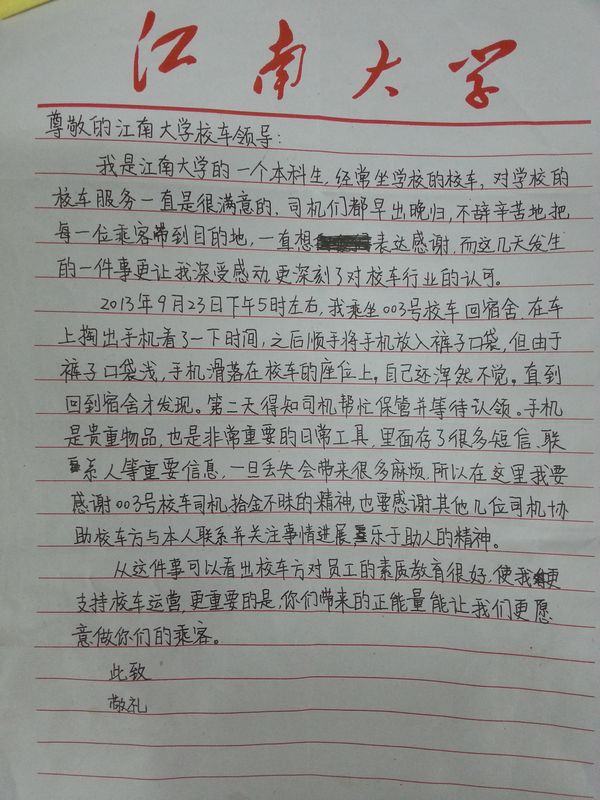 江南大学
尊敬的江南大学校车领导:
我是江南大学的一个本科生,经常坐学校的校车,对学校的
校车服务一直是很满意的,司机们都早出晚归,不辞辛苦地把
每一位乘客带到目的地,一直想表达感谢,而这几天发生
的一件事更让我深受感动,更深刻了对校车行业的认可。
2013年9月23日下午5时左右,我乘坐003号校车回宿舍,在车
上掏出手机看了一下时间,之后顺手将手机放入裤子口袋,但由于
裤子口袋浅,手机滑落在校车的座位上。自己还浑然不觉。直到
回到宿舍才发现。第二天得知司机帮忙保管并等待认领。手机
是贵重物品,也是非常重要的日常工具,里面存了很多短信、联
系人等重要信息,一旦丢失会带来很多麻烦,所以在这里我要
感谢003号校车司机拾金不昧的精神,也要感谢其他几位司机协
助校车方与本人联系并关注事情进展乐于助人的精神。
从这件事可以看出校车方对员工的素质教育很好,使我更
支持校车运营,更重要的是,你们带来的正能量能让我们更愿
意做你们的乘客。
此致
敬礼